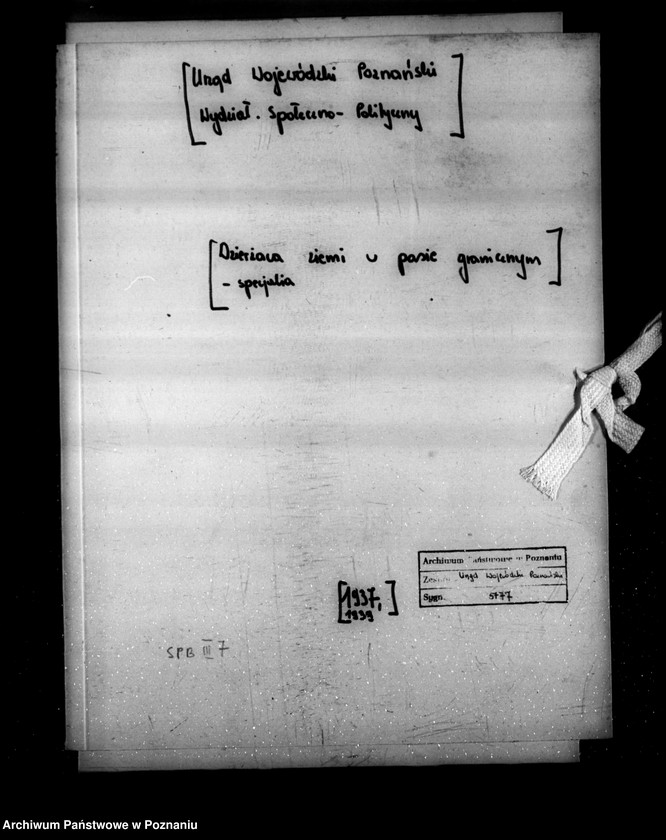 [Urząd Wojewódzki Poznański
Wydział. Społeczno-Polityczny]
[Dzierżawa ziemi w pasie granicznym
- specjalia]
[1937,
1939]
Archiwum Państwowe w Poznaniu
Zespół Urząd Wojewódzki Poznański
Sygn. 5777
SPB III 7
Archiwum Państwowe w Poznaniu